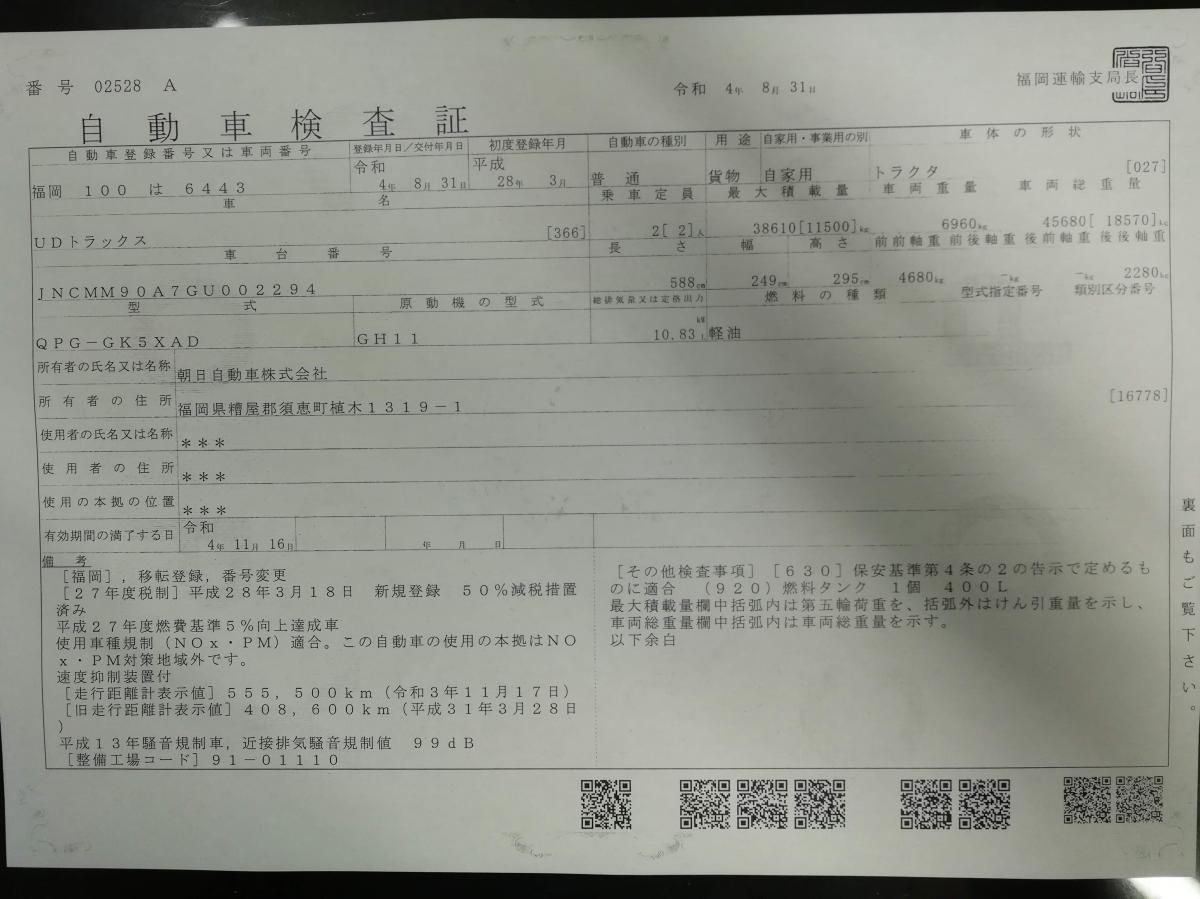 番号 02528 A
令和 4年 8月 31日
福岡運輸支局長
自動車検査証
自動車登録番号又は車両番号 登録年月日/交付年月日 初度登録年月 自動車の種別 用途 自家用・事業用の別 車体の形状
福岡 100 は 6443 令和 4年 8月 31日 平成 28年 3月 普通 貨物 自家用 トラクタ [027]
車名 乗車定員 最大積載量 車両重量 車両総重量
UDトラックス [366] 2[ 2]人 38610[11500]kg 6960kg 45680[ 18570]kg
車台番号 長さ 幅 高さ 前前軸重 前後軸重 後前軸重 後後軸重
JNCMM90A7GU002294 588cm 249cm 295cm 4680kg -kg -kg 2280kg
型式 原動機の型式 総排気量又は定格出力 燃料の種類 型式指定番号 類別区分番号
QPG-GK5XAD GH11 kW 10.83 L 軽油
所有者の氏名又は名称 朝日自動車株式会社
所有者の住所 福岡県糟屋郡須恵町植木1319-1 [16778]
使用者の氏名又は名称 ***
使用者の住所 ***
使用の本拠の位置 ***
有効期間の満了する日 令和 4年 11月 16日 年 月 日
備考
[福岡],移転登録,番号変更
[27年度税制]平成28年3月18日 新規登録 50%減税措置
済み
平成27年度燃費基準5%向上達成車
使用車種規制(NOx・PM)適合。この自動車の使用の本拠はNO
x・PM対策地域外です。
速度抑制装置付
[走行距離計表示値]555,500km(令和3年11月17日)
[旧走行距離計表示値]408,600km(平成31年3月28日
)
平成13年騒音規制車,近接排気騒音規制値 99dB
[整備工場コード]91-01110
[その他検査事項][630]保安基準第4条の2の告示で定めるも
のに適合 (920)燃料タンク 1個 400L
最大積載量欄中括弧内は第五輪荷重を、括弧外はけん引重量を示し、
車両総重量欄中括弧内は車両総重量を示す。
以下余白
裏面もご覧下さい。